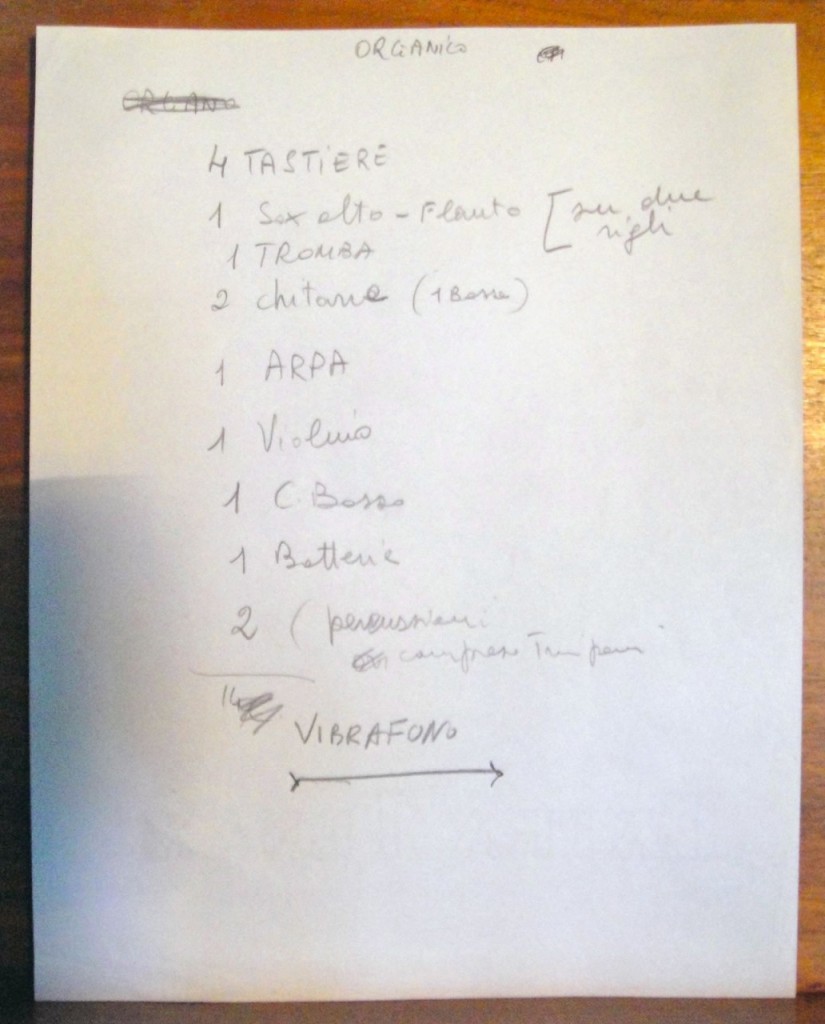 ORGANICO
ORGANO
4 TASTIERE
1 Sax alto - Flauto [su due
righi
1 TROMBA
2 chitarre (1 Basso)
1 ARPA
1 Violino
1 C. Basso
1 Batteria
2 ( percussioni
compreso Timpani
14
VIBRAFONO